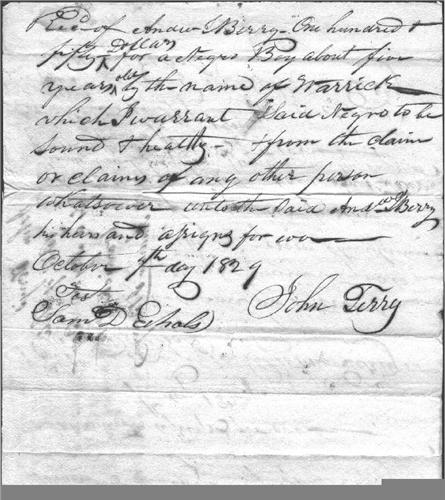 Recd of Andw J Berry One hundred &
fifty Dollars for a Negro Boy about five
years old by the name of Warrick
which I warrant Said Negro to be
Sound & healthy - & from the claim
or claims of any other person
whatsoever unto the Said Andw J Berry
his heirs and assigns for
October 9th day 1829
Test John Terry
Saml D Echols